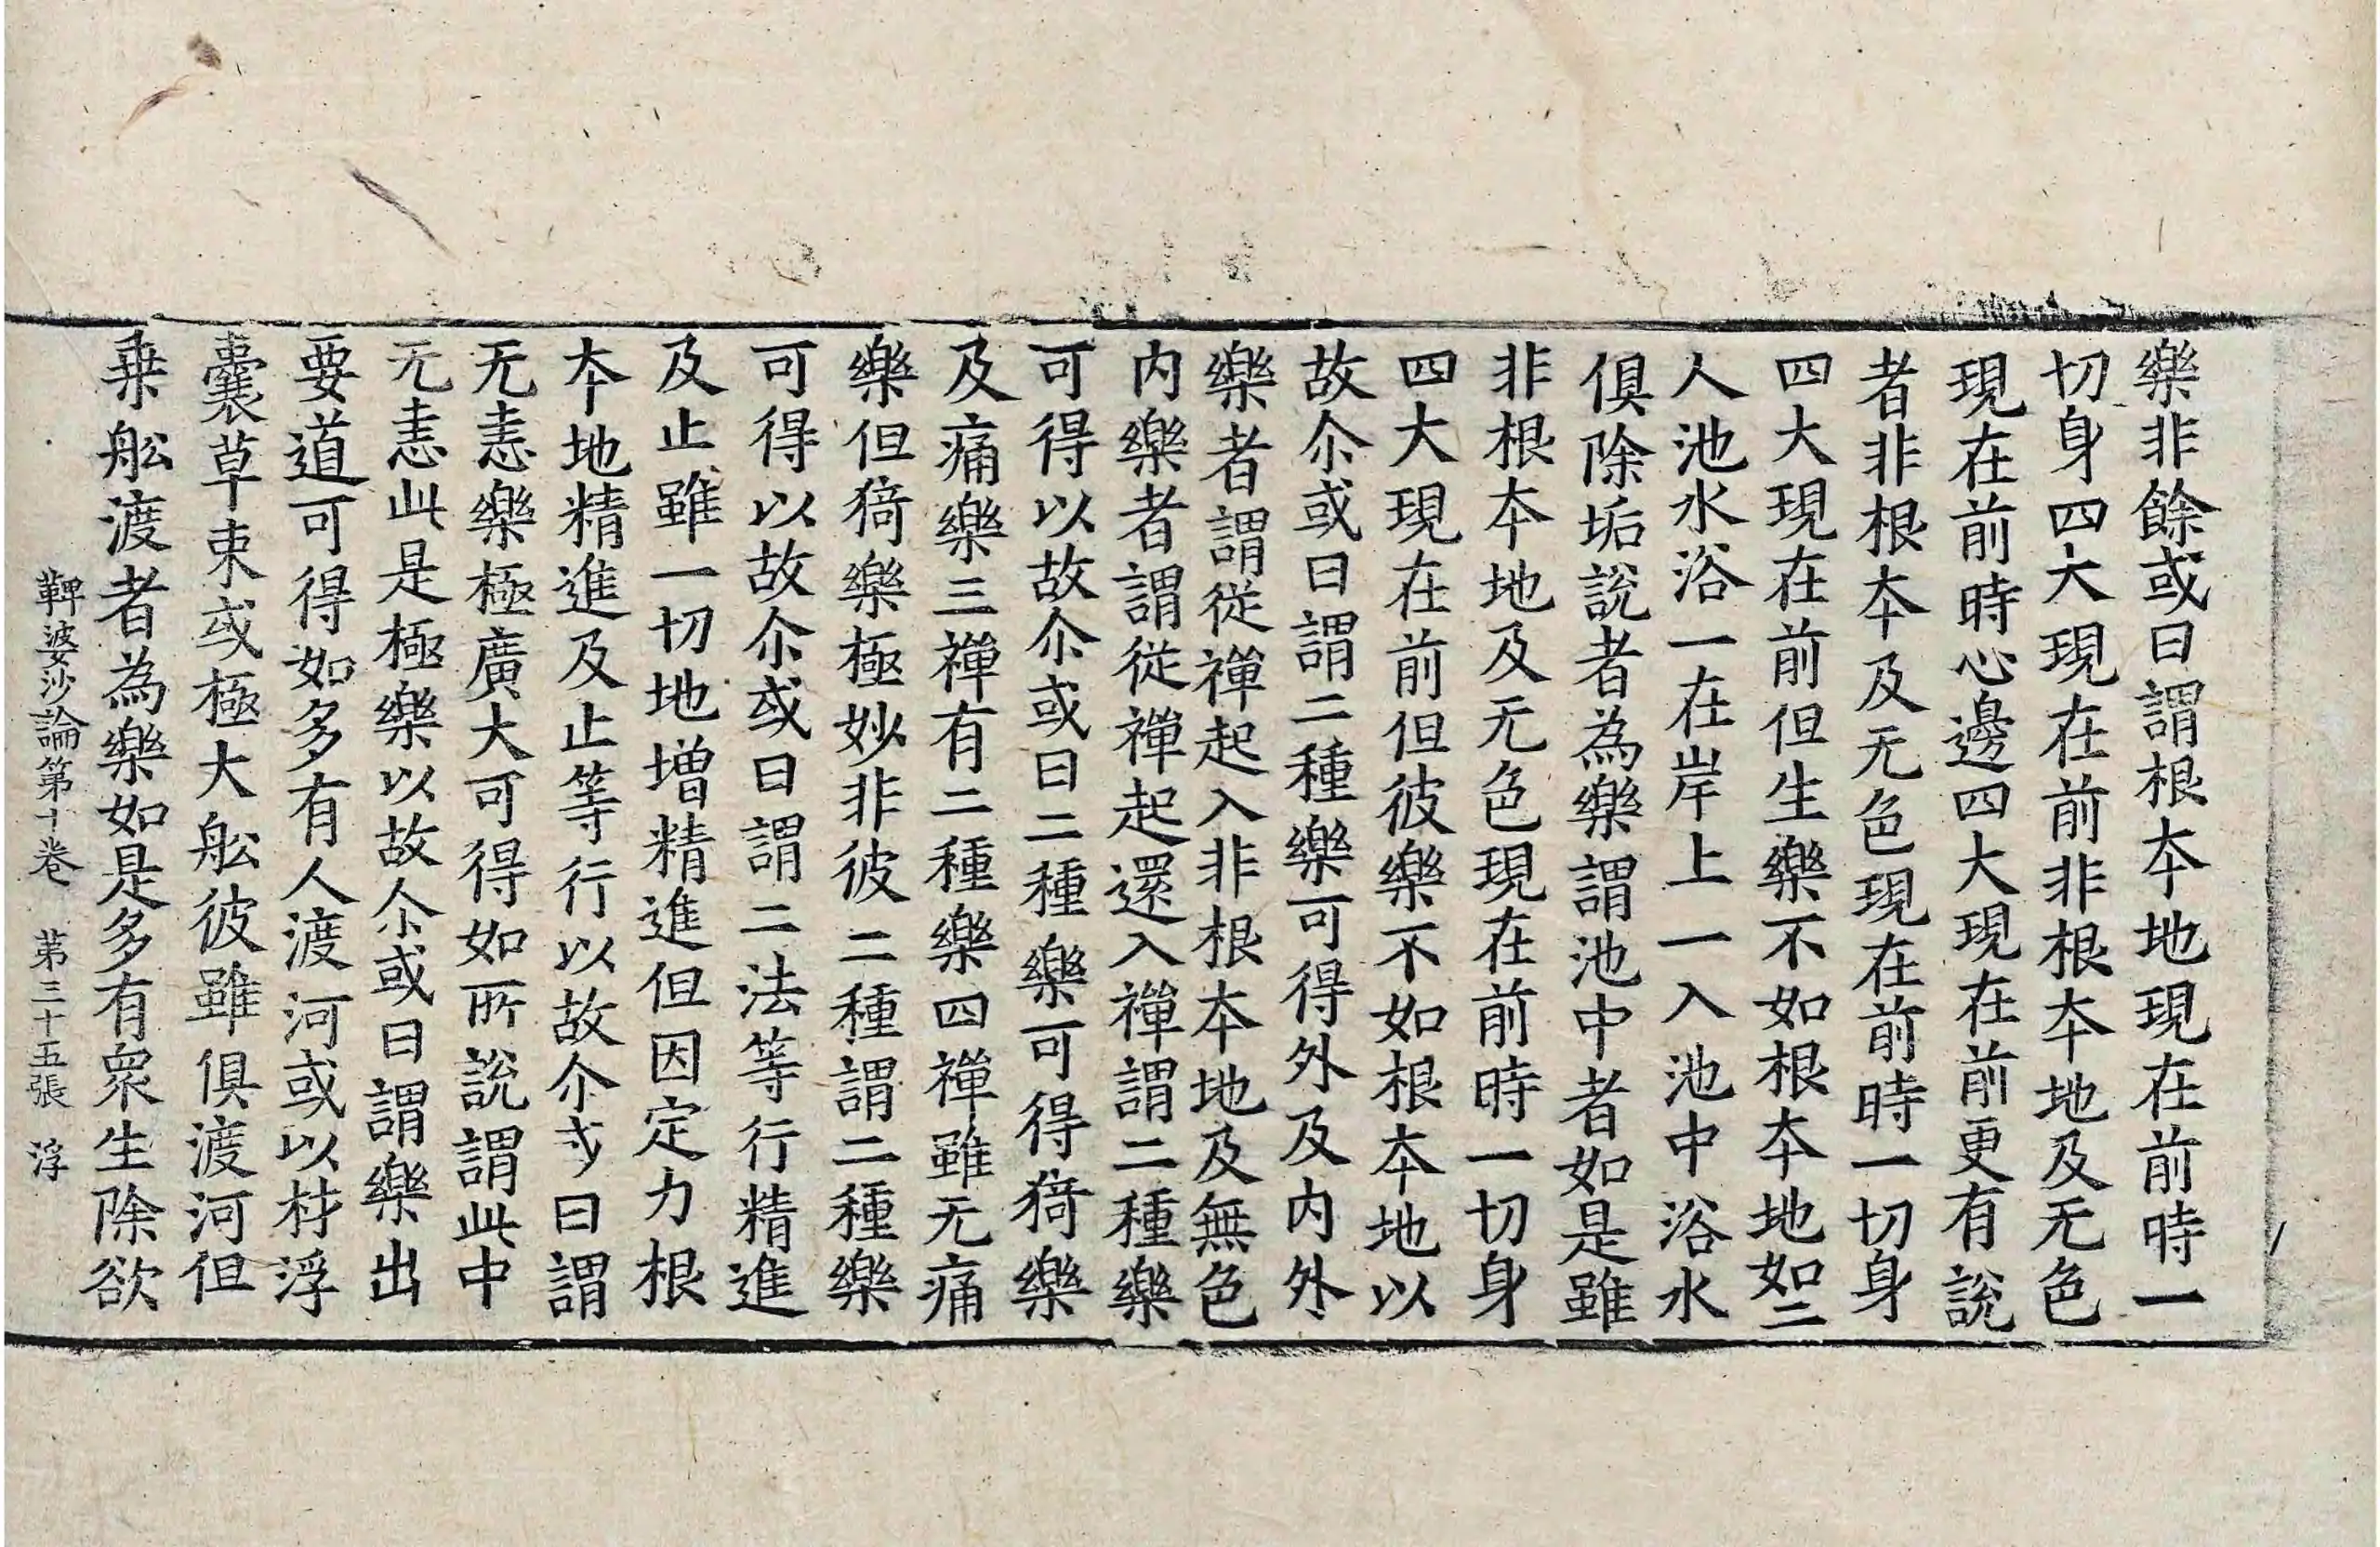 樂非餘或曰謂根夲地現在前時一
切身四大現在前非根夲地及无色
現在前時心邊四大現在前更有說
者非根夲及无色現在前時一切身
四大現在前但生樂不如根夲地如二
人池水浴一在岸上一入池中浴水
俱除垢說者為樂謂池中者如是雖
非根夲地及无色現在前時一切身
四大現在前但彼樂不如根夲地以
故尒或曰謂二種樂可得外及内外
樂者謂從禪起入非根夲地及無色
内樂者謂從禪起還入禪謂二種樂
可得以故尒或曰二種樂可得猗樂
及痛樂三禪有二種樂四禪雖无痛
樂但猗樂極妙非彼二種謂二種樂
可得以故尒或曰謂二法等行精進
及止雖一切地增精進但因定力根
夲地精進及止等行以故尒或曰謂
无恚樂極廣大可得如所說謂此中
无恚此是極樂以故尒或曰謂樂出
要道可得如多有人渡河或以材浮
囊草束或極大舩彼雖俱渡河但
乗舩渡者為樂如是多有衆生除欲
鞞婆沙論第十卷　第三十五張　浮